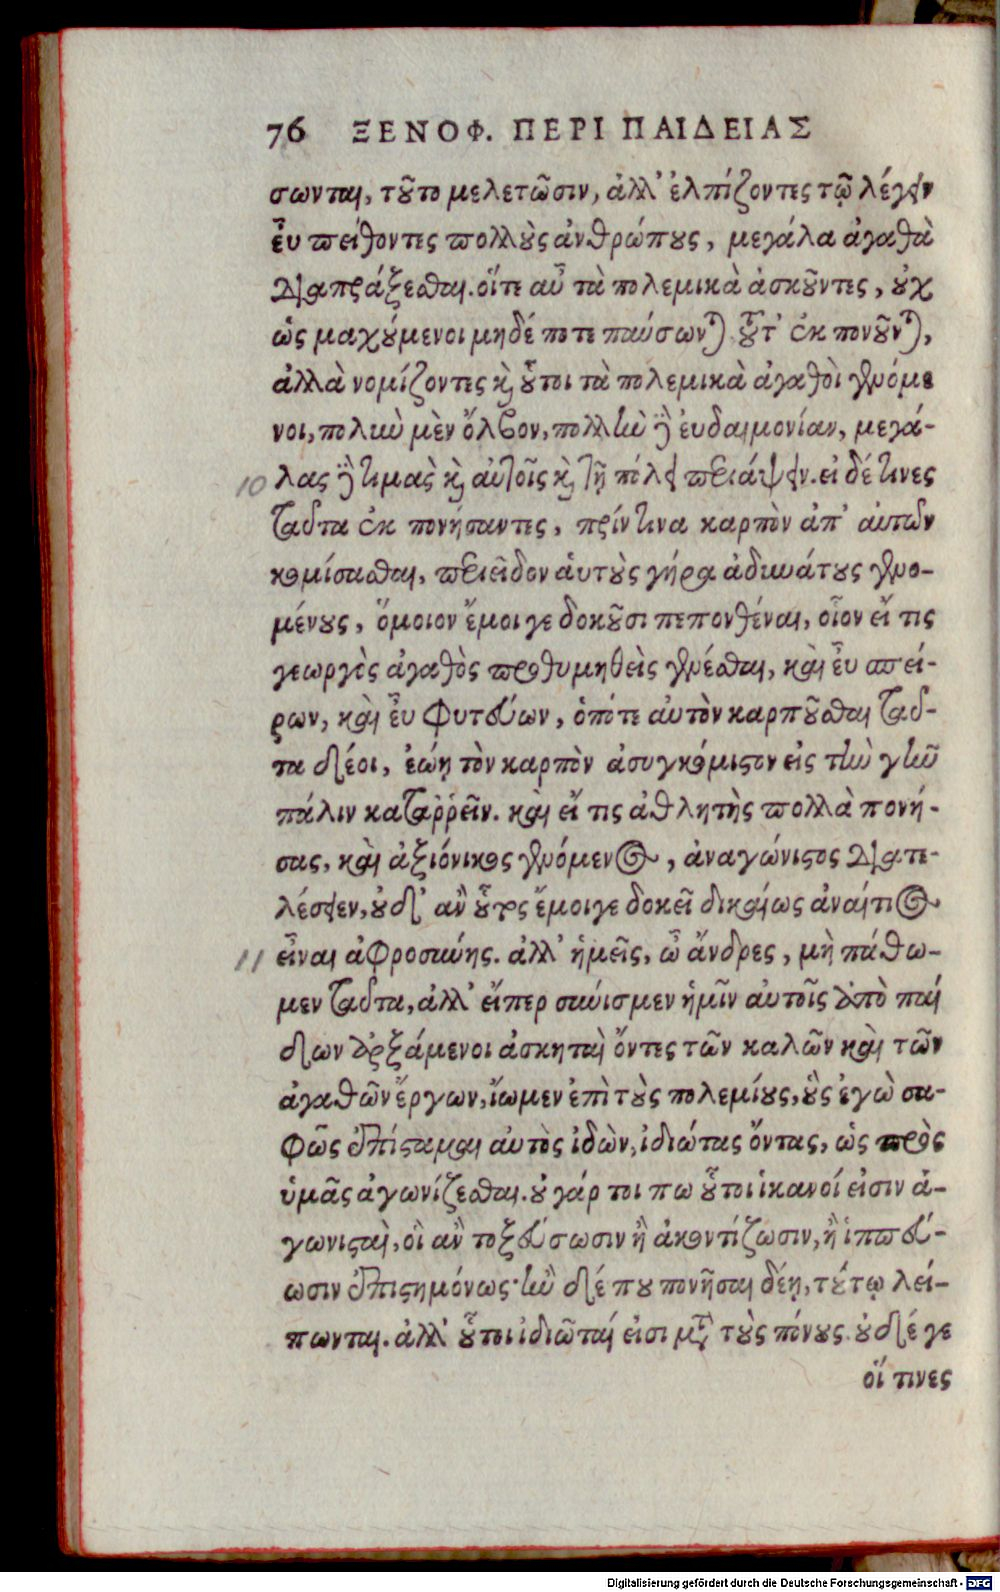 76 ΞΕΝΟΦ. ΠΕΡΙ ΠΑΙΔΕΙΑΣ
σωνται, τοῦτο μελετῶσιν, ἀλλ' ἐλπίζοντες τῷ λέγειν
εὖ πείθοντες πολλοὺς ἀνθρώπους, μεγάλα ἀγαθὰ
διαπράξεσθαι. οἵτε αὖ τὰ πολεμικὰ ἀσκοῦντες, οὐχ
ὡς μαχούμενοι μηδέ ποτε παύσωνται τοῦτ' ἐκπονοῦνται,
ἀλλὰ νομίζοντες καὶ οὗτοι τὰ πολεμικὰ ἀγαθοὶ γενόμε
νοι, πολὺν μὲν ὄλβον, πολλὴν δὲ εὐδαιμονίαν, μεγά-
10 λας δὲ τιμὰς καὶ αὑτοῖς καὶ τῇ πόλει περιάψειν. εἰ δέ τινες
ταῦτα ἐκ πονήσαντες, πρίν τινα καρπὸν ἀπ' αὐτῶν
κομίσασθαι, περιεῖδον ἑαυτοὺς γήρᾳ ἀδυνάτους γενο-
μένους, ὅμοιον ἔμοιγε δοκοῦσι πεπονθέναι, οἷον εἴ τις
γεωργὸς ἀγαθὸς προθυμηθεὶς γενέσθαι, καὶ εὖ σπεί-
ρων, καὶ εὖ φυτεύων, ὁπότε αὐτὸν καρποῦσθαι ταῦ-
τα δέοι, ἐῴη τὸν καρπὸν ἀσυγκόμιστον εἰς τὴν γῆν
πάλιν καταῤῥεῖν. καὶ εἴ τις ἀθλητὴς πολλὰ πονή-
σας, καὶ ἀξιόνικος γενόμενος, ἀναγώνιστος διατε-
λέσειεν, οὐδ' ἂν οὗτος ἔμοιγε δοκεῖ δικαίως ἀναίτιος
11 εἶναι ἀφροσύνης. ἀλλ' ἡμεῖς, ὦ ἄνδρες, μὴ πάθω-
μεν ταῦτα, ἀλλ' εἴπερ σύνισμεν ἡμῖν αὐτοῖς ἀπὸ παί
δων ἀρξάμενοι ἀσκηταὶ ὄντες τῶν καλῶν καὶ τῶν
ἀγαθῶν ἔργων, ἴωμεν ἐπὶ τοὺς πολεμίους, οὓς ἐγὼ σα-
φῶς ἐπίσταμαι αὐτὸς ἰδὼν, ἰδιώτας ὄντας, ὡς πρὸς
ὑμᾶς ἀγωνίζεσθαι. οὐ γάρ τοι πω οὗτοι ἱκανοί εἰσιν ἀ-
γωνισταὶ, οἳ ἂν τοξεύσωσιν ἢ ἀκοντίζωσιν, ἢ ἱππεύ-
ωσιν ἐπιστημόνως· ἢν δέ που πονῆσαι δέῃ, τούτῳ λεί-
πωνται. ἀλλ' οὗτοι ἰδιῶταί εἰσι μετὰ τοὺς πόνους. οὐδέ γε
οἵ τινες
Digitalisierung gefördert durch die Deutsche Forschungsgemeinschaft - DFG